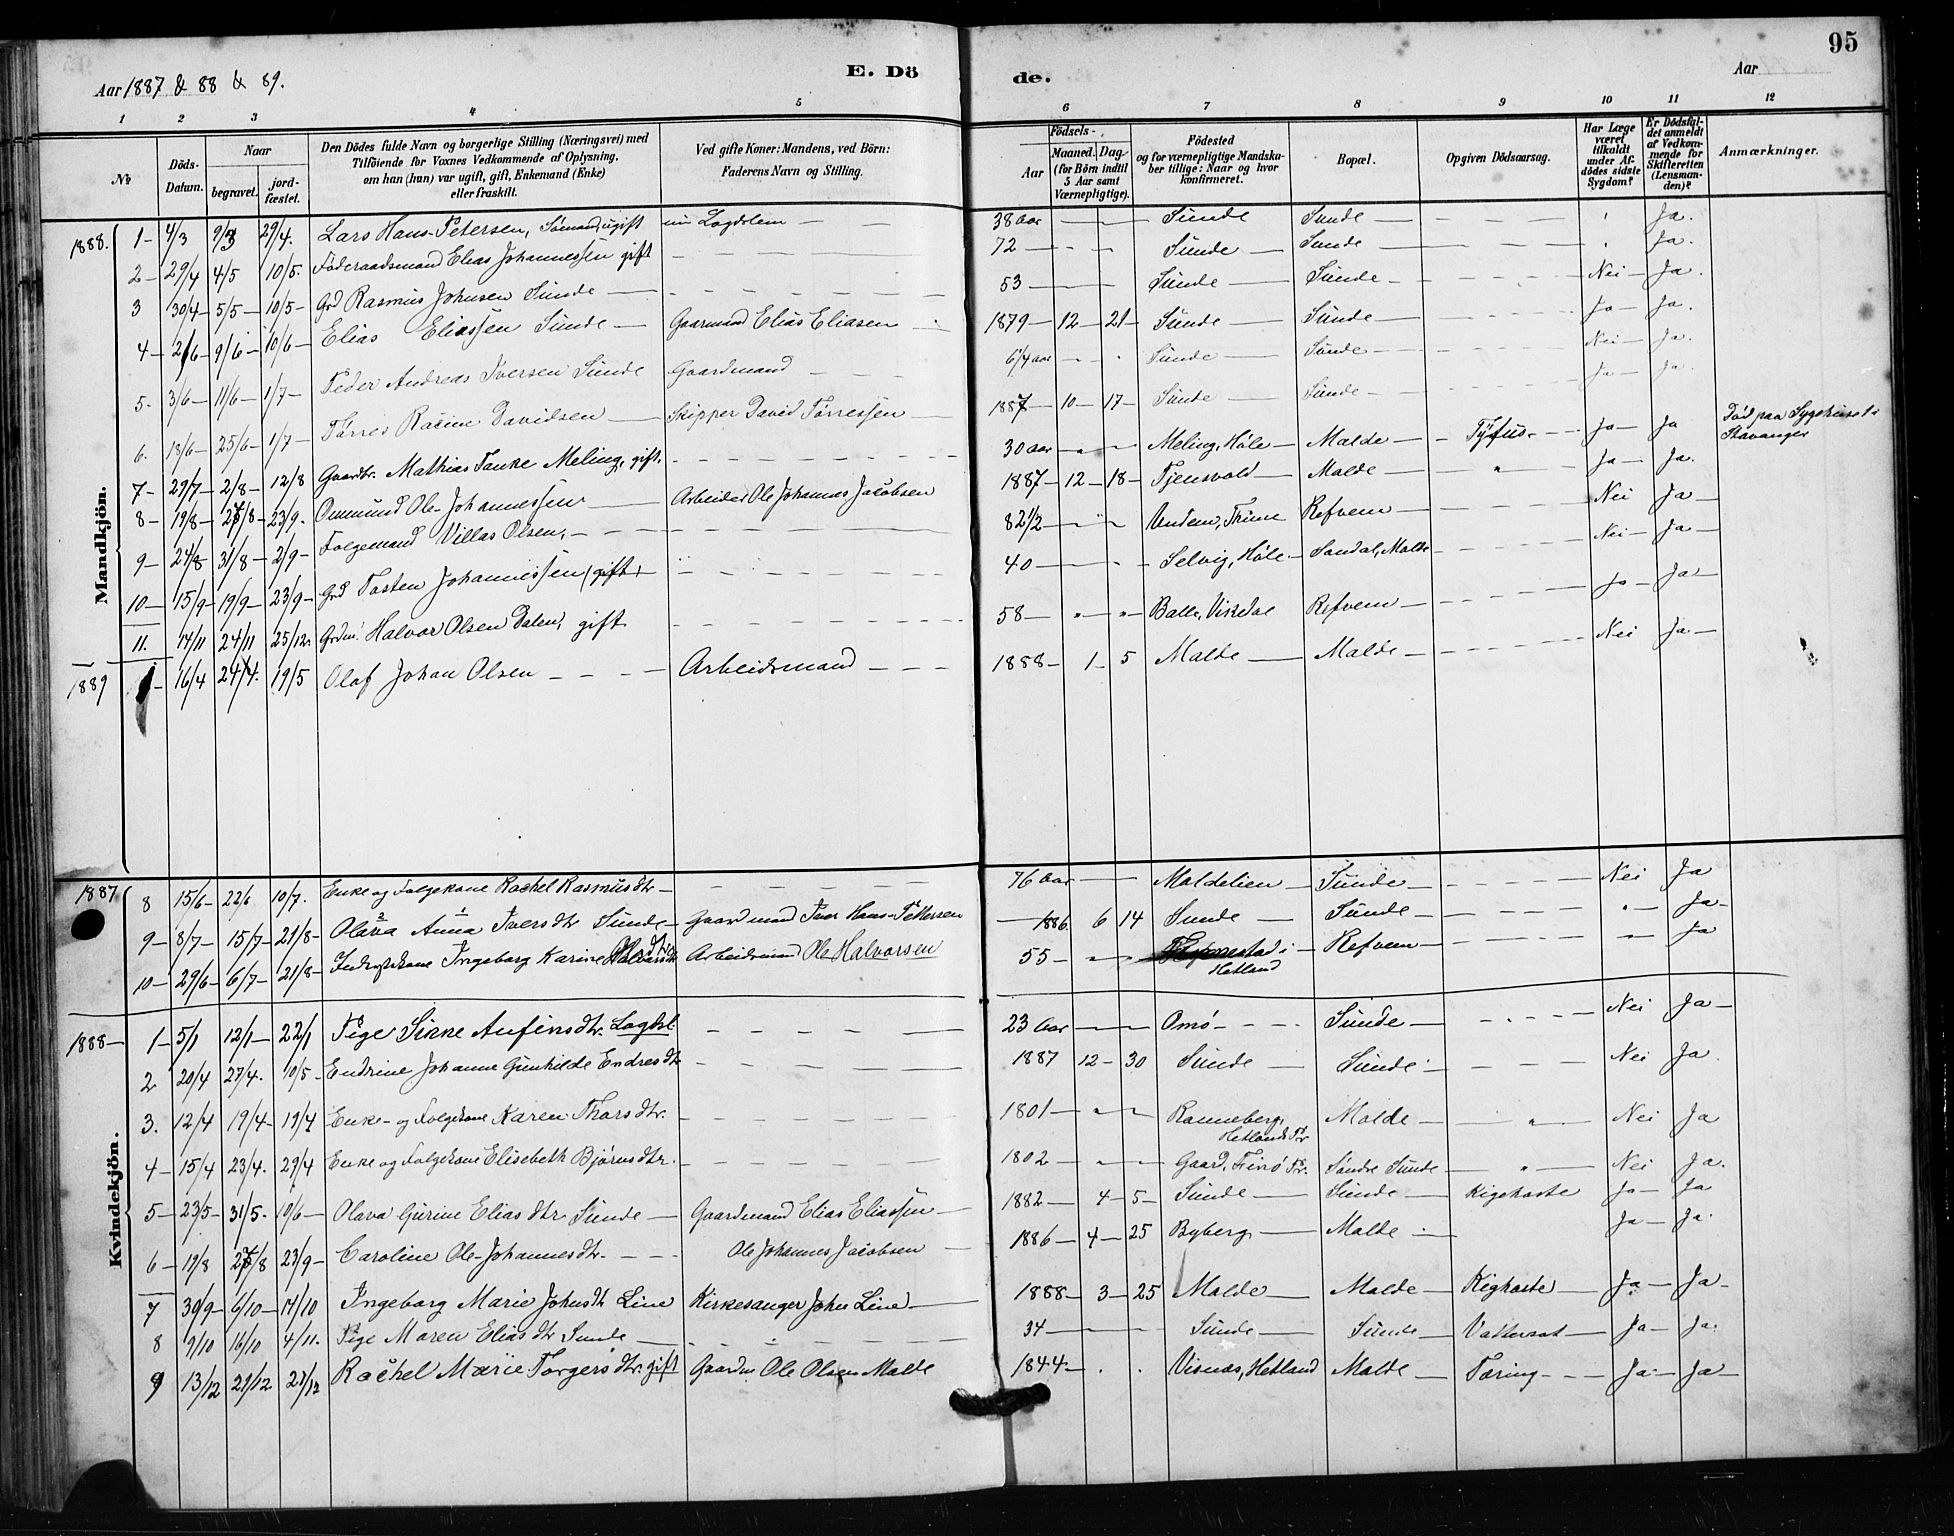 95
Aar 1887 & 88 & 89.
E. Dö
de.
Aar
1 2 3 4 5 6 7 8 9 10 11 12
No
Döds-Datum.
Naar
begravet.
jord-fæstet.
Den Dödes fulde Navn og borgerlige Stilling (Næringsvei) med
Tilföiende for Voxnes Vedkommende af Oplysning,
om han (hun) var ugift, gift, Enkemand (Enke)
eller fraskilt.
Ved gifte Koner: Mandens, ved Börn:
Faderens Navn og Stilling.
Födsels-
Aar
Maaned. Dag
(for Börn indtil
5 Aar samt
Værnepligtige).
Födested
og for værnepligtige Mandska-
ber tillige: Naar og hvor
konfirmeret.
Bopæl.
Opgiven Dödsaarsag.
Har Læge
været
tilkaldt
under Af-
dödes sidste
Sygdom?
Er Dödsfal-
det anmeldt
af Vedkom-
mende for
Skifteretten
(Lensman-
den)?
Anmærkninger.
Mandkjön.
1888. 1 - 4/3 9/3 29/4. Lars Hans Petersen, Sømand, ugift 38 aar Sunde Sunde Ja.
2 - 29/4 4/5 10/5. Föderaadsmand Elias Johannessen gift 72 Sunde Sunde Ja.
3 30/4 5/5 10/5 Grd Rasmus Johnsen Sunde 53 Sunde Sunde Nei Ja.
4 - 9/6 10/6 Elias Eliassen Sunde Gaarmand Elias Eliasen 1879 12 21 Sunde Sunde Ja Ja.
5. 3/6 11/6 1/7 Peder Andreas Iversen Sunde Gaardmand 6 1/4 aar Sunde Sunde Nei Ja.
6. 18/6 25/6 1/7 Tørres Racine Davidsen Skipper David Tørressen 1887 10 17 Sunde Sunde Ja Ja.
7 - 29/7 2/8 12/8 Gaardbr. Mathias Tanke Meling, gift. 30 aar Meling, Høle Malde Tyfus Ja Ja Död paa Sygehuset i Stavanger
8 - 19/8 27/8 23/9. Ommund Ole Johannessen Arbeider Ole Johannes Jacobsen 1887 12 18 Tjensvold Malde " Ja Ja.
9 - 24/8 31/8 2/9 Folgemand Villas Olsen, 82 1/2 Undem, Thime Refvem Nei Ja
10 - 15/9 19/9 23/9 Grd Tosten Johannessen, gift, 40 Selvig, Høle Sandal, Malde Nei Ja
11. 14/11 24/11 25/12. Grdm. Halvor Olsen Dalen, gift 58 Balle, Vikedal Refvem Ja Ja
1889 1 - 16/4 24/4. 19/5 Olaf Johan Olsen Arbeidsmand 1888 1 5 Malde Malde Nei Ja
Kvindekjön.
1887 8 15/6 22/6 10/7. Enke og Folgekone Rachel Rasmusdtr 76 Aar Maldelien Sunde Nei Ja
9 - 8/7 15/7 21/8 Olava Anna Iversdtr Sunde Gaardmand Iver Hans Pettersen 1886 6 14 Sunde Sunde " Ja
10 - 29/6 6/7 21/8 Inderstkone Ingeborg Karine Arbeidsmand Ole Halvorsen 55 Hetland Refvem " Ja
1888 1 - 5/1 12/1 22/1 Pige Sikke Anfinsdtr. 23 Aar Omø Sunde Nei Ja
2 20/4 27/4. 10/5 Endrine Johanne Gunhilde Endresdtr 1887 12 30 Sunde Sunde Nei Ja.
3. 12/4 19/4 19/4 Enke- og Folgekone Karen Thorsdtr. 1801 Ranneberg, Hetlands Pr Malde " Nei Ja
4 - 15/4 23/4. 29/4 Enke og Folgekone Elisebeth Bjørnsdtr. 1802 Gaard, Finø Pr. Søndre Sunde " Nei Ja.
5 - 23/5 31/5. 10/6 Olava Gurine Eliasdtr Sunde Gaardmand Elias Eliassen 1882 4 5 Sunde Sunde Kighoste Ja Ja
6 - 19/8 27/8 23/9 Caroline Ole-Johannesdtr. Ole Johannes Jacobsen 1886 4 25 Byberg Malde Ja Ja.
7 30/9 6/10 14/10 Ingeborg Marie Johnsdtr Line Kirkesanger John Line 1888 3 25 Malde Malde Kighoste Ja Ja
8 9/10 16/10 4/11. Pige Maren Eliasdtr Sunde 34 Sunde Sunde Vattersot Ja Ja.
9 13/12 21/12 21/12 Rachel Marie Torgersdtr. gift Gaardm Ole Olsen Malde 1844 Visnæs, Hetland Malde Tæring Ja Ja